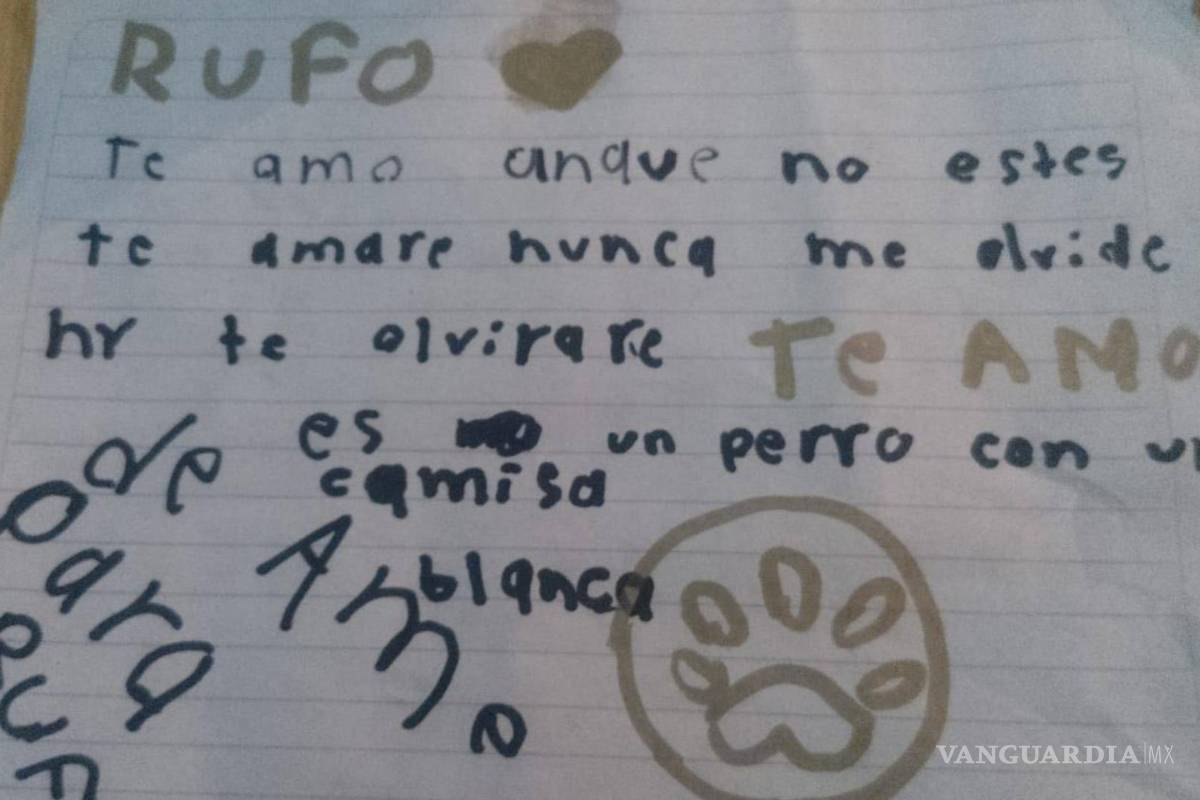 RUFO
Te amo anque no estes
te amare nunca me olvide
hr te olvirare TE AMO
es un perro con un
camisa
blanca
de
para
Ruf
VANGUARDIA|MX